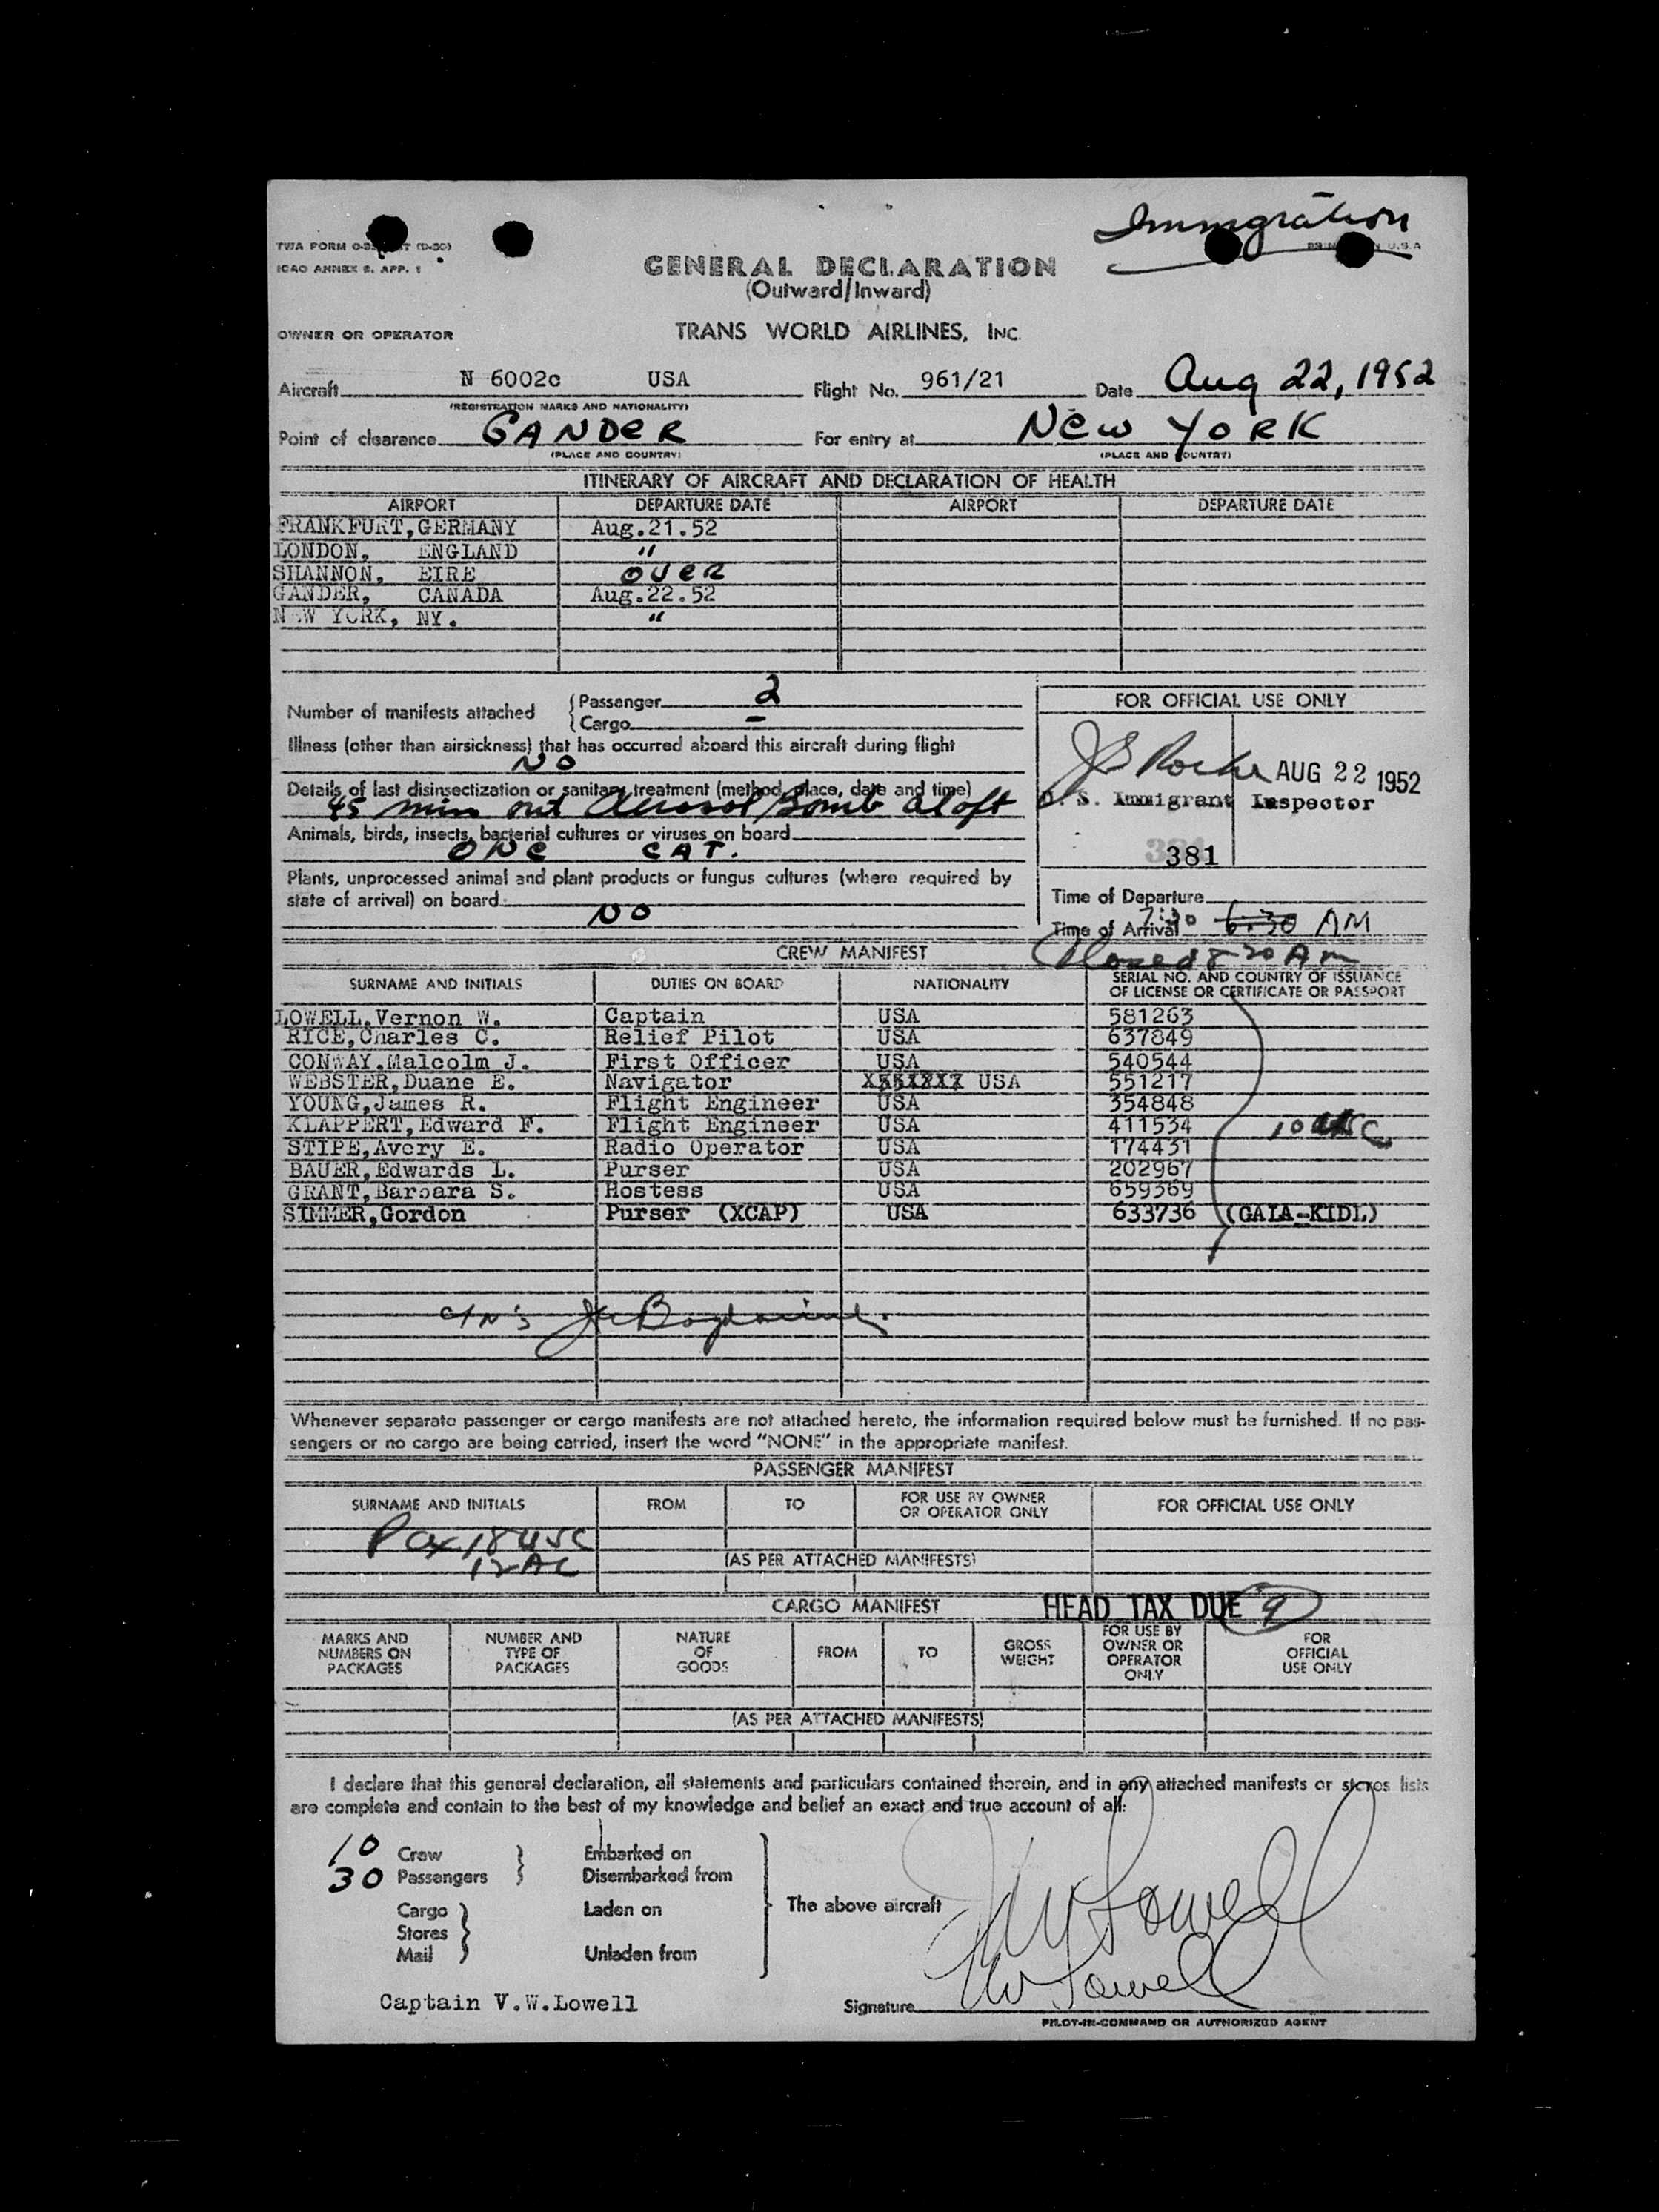 Immigration
TWA FORM
ICAO ANNEX 9. APP. 1
U.S.A
GENERAL DECLARATION
(Outward/Inward)
OWNER OR OPERATOR TRANS WORLD AIRLINES, INC.
Aircraft N 6002c USA Flight No. 961/21 Date Aug 22, 1952
(REGISTRATION MARKS AND NATIONALITY)
Point of clearance GANDER For entry at NEW YORK
(PLACE AND COUNTRY) (PLACE AND COUNTRY)
ITINERARY OF AIRCRAFT AND DECLARATION OF HEALTH
AIRPORT DEPARTURE DATE AIRPORT DEPARTURE DATE
FRANKFURT, GERMANY Aug.21.52
LONDON, ENGLAND "
SHANNON, EIRE OVER
GANDER, CANADA Aug.22.52
NEW YORK, NY. "
Number of manifests attached Passenger 2
Cargo -
FOR OFFICIAL USE ONLY
Illness (other than airsickness) that has occurred aboard this aircraft during flight
NO
AUG 22 1952
Details of last disinsectization or sanitary treatment (method, place, date and time)
45 min out Aerosol Bomb aloft
U. S. Immigrant Inspector
Animals, birds, insects, bacterial cultures or viruses on board
ONE CAT.
381
Plants, unprocessed animal and plant products or fungus cultures (where required by
state of arrival) on board
NO
Time of Departure
Time of Arrival 7:30 6:30 AM
Closed 8 20 AM
CREW MANIFEST
SURNAME AND INITIALS DUTIES ON BOARD NATIONALITY SERIAL NO. AND COUNTRY OF ISSUANCE
OF LICENSE OR CERTIFICATE OR PASSPORT
LOWELL, Vernon W. Captain USA 581263
RICE, Charles C. Relief Pilot USA 637849
CONWAY, Malcolm J. First Officer USA 540544
WEBSTER, Duane E. Navigator USA 551217
YOUNG, James R. Flight Engineer USA 354848
KLAPPERT, Edward F. Flight Engineer USA 411534
10 USC
STIPE, Avery E. Radio Operator USA 174431
BAUER, Edwards L. Purser USA 202967
GRANT, Barbara S. Hostess USA 659369
SIMMER, Gordon Purser (XCAP) USA 633736 (GAIA-KIDL)
Whenever separate passenger or cargo manifests are not attached hereto, the information required below must be furnished. If no pas-
sengers or no cargo are being carried, insert the word "NONE" in the appropriate manifest.
PASSENGER MANIFEST
SURNAME AND INITIALS FROM TO FOR USE BY OWNER
OR OPERATOR ONLY FOR OFFICIAL USE ONLY
Pax 18 USC
12 AC
(AS PER ATTACHED MANIFESTS)
CARGO MANIFEST HEAD TAX DUE 9
MARKS AND
NUMBERS ON
PACKAGES
NUMBER AND
TYPE OF
PACKAGES
NATURE
OF
GOODS
FROM TO
GROSS
WEIGHT
FOR USE BY
OWNER OR
OPERATOR
ONLY
FOR
OFFICIAL
USE ONLY
(AS PER ATTACHED MANIFESTS)
I declare that this general declaration, all statements and particulars contained therein, and in any attached manifests or stores lists
are complete and contain to the best of my knowledge and belief an exact and true account of all:
10 Crew Embarked on
30 Passengers Disembarked from
Cargo Laden on The above aircraft
Stores
Mail Unladen from
VW Lowell
VW Lowell
Captain V.W.Lowell Signature
PILOT-IN-COMMAND OR AUTHORIZED AGENT